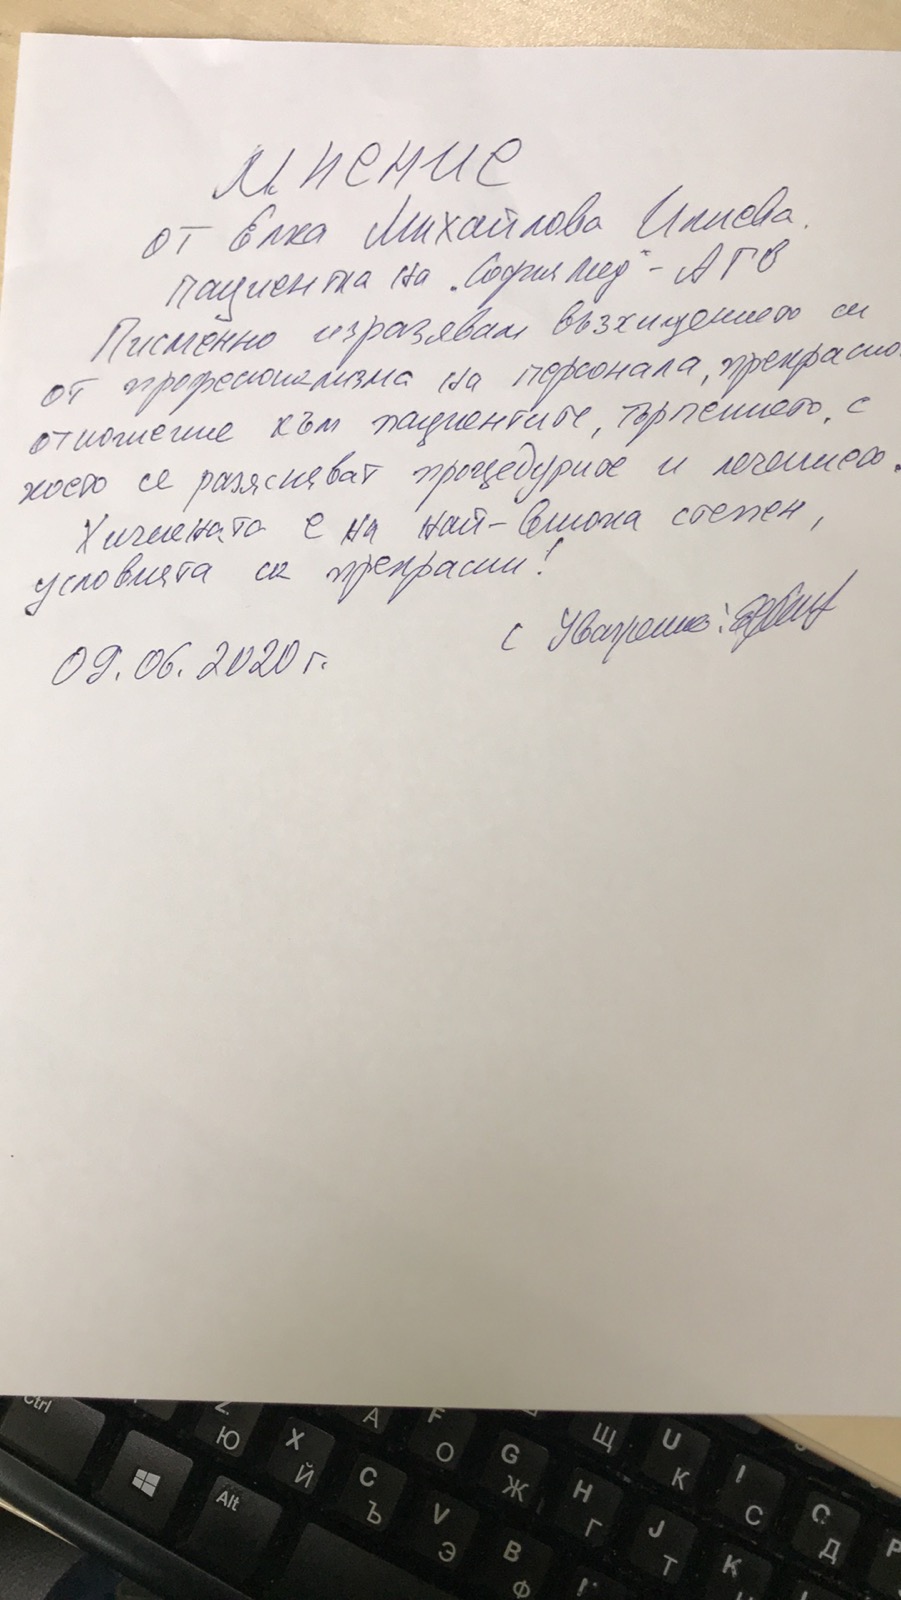 Мнение
от Елка Михайлова Илиева.
пациентка на „София Мед" - АГВ
Писменно изразявам възхищението си
от професионализма на персонала, прекрасно
отношение към пациентите, търпението, с
което се разясняват процедурите и лечението.
Хигиената е на най-висока степен,
условията са прекрасни!
09.06.2020 г.
с Уважение:
Ctrl
Ю
X Й
A
F О
Щ
U К
Alt
C Ъ
G Ж
I С
O Д
P
V Э
H Г
J Т
B Ф
K